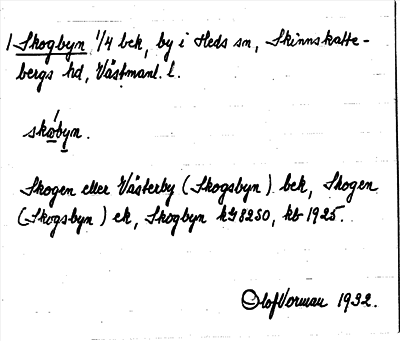 1 Skogbyn 1/4 bek, by i Heds sn, Skinnskatte-
bergs hd, Västmanl. l.
skobyn.
Skogen eller Västerby (Skogsbyn) bek, Skogen
(Skogsbyn) ek, Skogbyn kG 8250, kb 1925.
Olof Vorman 1932.